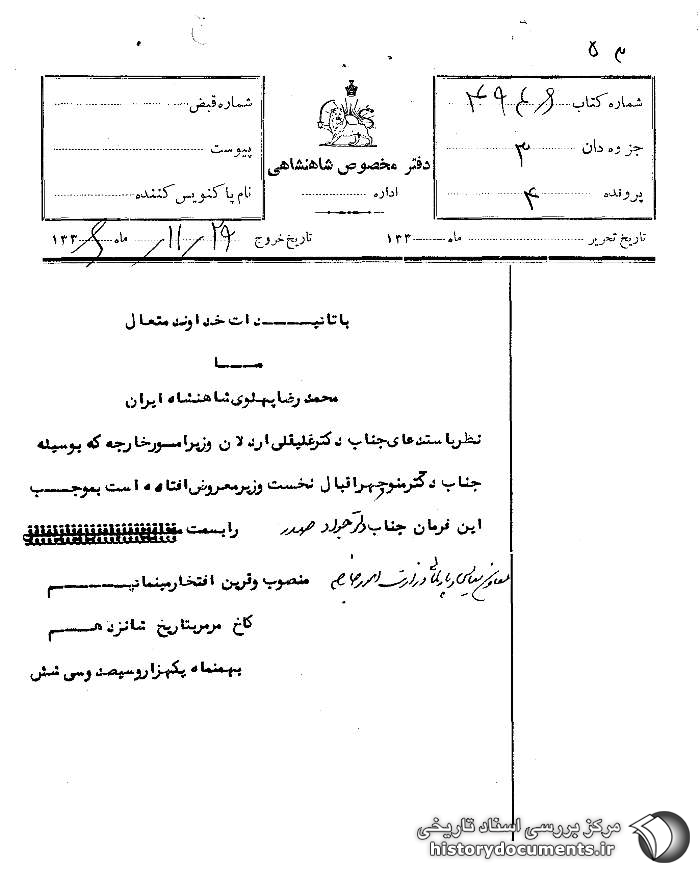 ۵۳
شماره کتاب ۳۹۴۶
جزوه دان ۳
پرونده ۴
دفتر مخصوص شاهنشاهی
اداره
شماره قبض
پیوست
نام پاکنویس کننده
تاریخ تحریر ماه ۱۳۳
تاریخ خروج ۲۹/۱۱/ ماه ۱۳۳۶
با تائیدات خداوند متعال
ما
محمد رضا پهلوی شاهنشاه ایران
نظر باستدعای جناب دکتر علیقلی اردلان وزیر امور خارجه که بوسیله
جناب دکتر منوچهر اقبال نخست وزیر معروض افتاده است بموجب
این فرمان جناب دکتر جواد صدر را بسمت
معاون سیاسی و پارلمانی وزارت امور خارجه منصوب و قرین افتخار مینمائیم
کاخ مرمر بتاریخ شانزدهم
بهمنماه یکهزار و سیصد و سی شش
مرکز بررسی اسناد تاریخی
historydocuments.ir